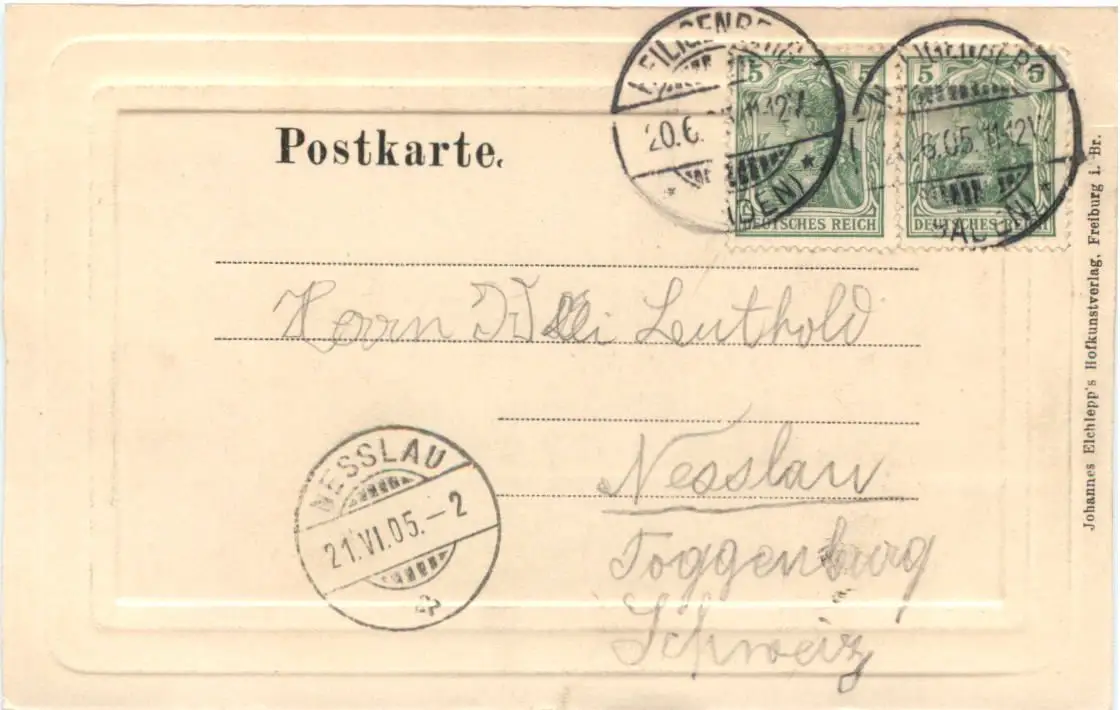 Postkarte.
HEILIGENBERG
20.6. 11-12V.
(BADEN)
5 5
DEUTSCHES REICH
HEILIGENBERG
6.05. 11-12V
(BADEN)
5 5
DEUTSCHES REICH
Herrn Leuthold
Nesslau
Toggenburg
Schweiz
NESSLAU
21.VI.05.–2
Johannes Elchlepp's Hofkunstverlag, Freiburg i. Br.